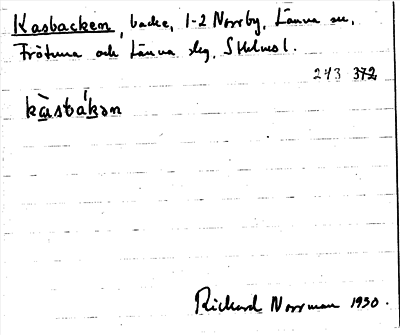 Kasbacken, backe, 1-2 Norrby, Länna sn,
Frötuna och Länna skg, Sthlms l.
243 372
kàsbákən
Richard Norrman 1930.